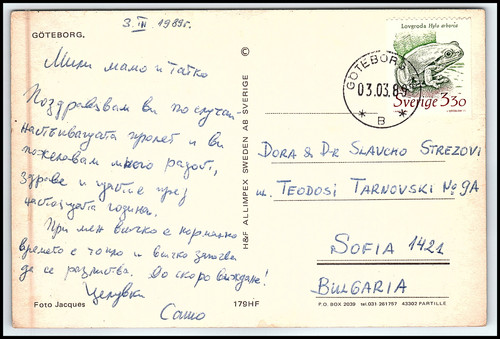 3. III 1989г.
GÖTEBORG.
Мили мамо и татко
Поздравявам ви по случай
настъпващата пролет и ви
пожелавам много радост,
здраве и щастие през
настоящата година.
При мен всичко е нормално
времето е топло и всичко започва
да се разлиства. До скоро виждане!
Целувки
Сашо
Foto Jacques
179HF
© H&F ALLIMPEX SWEDEN AB SVERIGE
Lövgroda Hyla arborea
Sverige 330
GÖTEBORG
03.03.89
* B *
DORA & DR SLAVCHO STREZOVI
ul. TEODOSI TARNOVSKI № 9A
SOFIA 1421
BULGARIA
P.O. BOX 2028 tel.031 261757 43302 PARTILLE